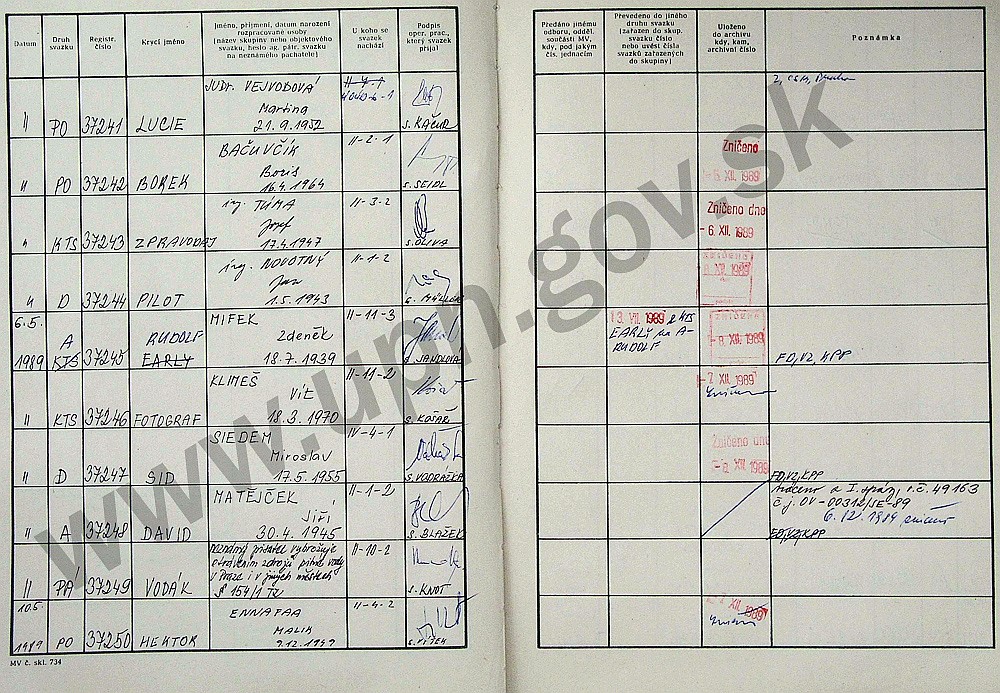 Datum
Druh svazku
Registr. číslo
Krycí jméno
Jméno, příjmení, datum narození
rozpracované osoby
(název skupiny nebo objektového
svazku, heslo ag. pátr. svazku
na neznámého pachatele)
U koho se
svazek
nachází
Podpis
oper. prac.,
který svazek
přijal
Předáno jinému
odboru, odděl.
součásti MV,
kdy, pod jakým
čís. jednacím
Převedeno do jiného
druhu svazku
(zařazen do skup.
svazku číslo
nebo uvést čísla
svazků zařazených
do skupiny)
Uloženo
do archivu
kdy, kam,
archivní číslo
Poznámka
JUDr. VEJVODOVÁ
Martina
" PO 37241 LUCIE 21.9.1952 S. KAČUR
BAČUVČÍK II-2-1
Boris
" PO 37242 BOREK 16.4.1964 S. SEIDL
Zničeno
XII. 1989
ing. TŮMA II-3-2
Josef
" KTS 37243 ZPRAVODAJ 17.4.1947 S. OLIVA
Zničeno dne
-6. XII. 1989
ing. NOVOTNÝ II-1-2
Jan
" D 37244 PILOT 1.5.1943
XII. 1989
6.5. MIFEK II-11-3
A RUDOLF Zdeněk
1989 KTS 37245 EARLY 18.7.1939
13. VII. 1989 z KTS
EARLY na A-
RUDOLF
ZNIČENO
-8. XII. 1989
FO, VZ, KPP
KLIMEŠ II-11-2
Vít
" KTS 37246 FOTOGRAF 18.3.1970 S. KOŠAŘ
-7. XII. 1989
SIEDEM IV-4-1
Miroslav
" D 37247 SID 17.5.1955 S. VODRÁŽKA
Zničeno dne
XII. 1989
FO, VZ, KPP
MATĚJČEK II-1-2
Jiří
" A 37248 DAVID 30.4.1945 S. BLAŽEK
Vráceno z I. správy, r.č. 49163
č.j. OV-00312/SE-89
6.12.1989 zničení
FO, VZ, KPP
neznámý pisatel vyhrožuje II-10-2
otrávením zdrojů pitné vody
v Praze i v jiných městech
" PÁ 37249 VODÁK § 154/1 TZ S. KNOT
10.5. ENNAFAA II-4-2
MALIK
1989 PO 37250 HEKTOR 9.12.1949
XII. 1989
MV č. skl. 734
www.upn.gov.sk